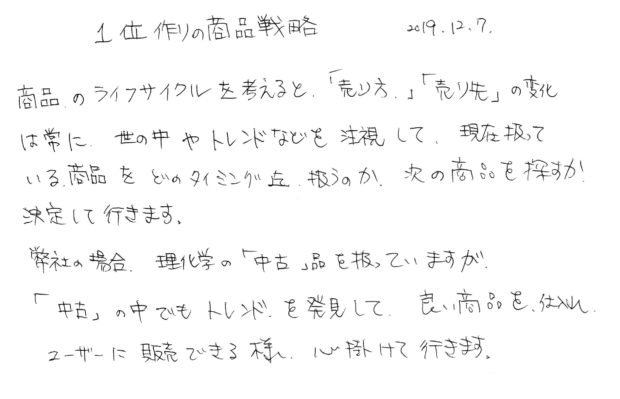 1位作りの商品戦略 2019.12.7.
商品のライフサイクルを考えると、「売り方」「売り先」の変化
は常に、世の中やトレンドなどを注視して、現在扱って
いる商品をどのタイミング迄扱うのか、次の商品を探すか
決定して行きます。
弊社の場合、理化学の「中古」品を扱っていますが、
「中古」の中でもトレンドを発見して、良い商品を、仕入れ、
ユーザーに販売できる様、心掛けて行きます。